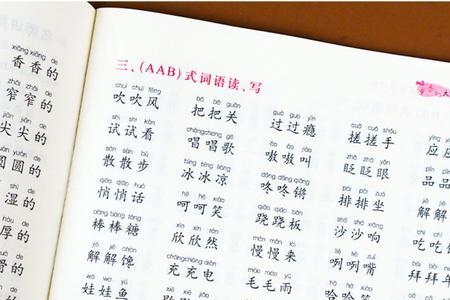 xiāng xiāng de
香香的
zhǎi zhǎi de
窄窄的
尖尖的
圆圆的
湿的
厚的
的
三、(AAB)式词语读、写
chuī chuī fēng bǎ bǎ guān guò guò yǐn cuō cuō shǒu
吹吹风 把把关 过过瘾 搓搓手 应应
shì shì kàn chàng chàng gē áo áo jiào zhǎ zhǎ yǎn
试试看 唱唱歌 嗷嗷叫 眨眨眼 品品
sàn sàn bù bīng bīng liáng dōng dōng qiāng pái pái zuò
散散步 冰冰凉 咚咚锵 排排坐 解解
qiāo qiāo huà hē hē xiào qiāo qiāo bǎn shā shā xiǎng
悄悄话 呵呵笑 跷跷板 沙沙响 吃吃
bàng bàng táng xīn xīn rán màn màn lái liě liě zuǐ
棒棒糖 欣欣然 慢慢来 咧咧嘴 拜拜
jiě jiě chán chōng chōng diàn máo máo yǔ
解解馋 充充电 毛毛雨 哈哈
wá wá yú
娃娃鱼